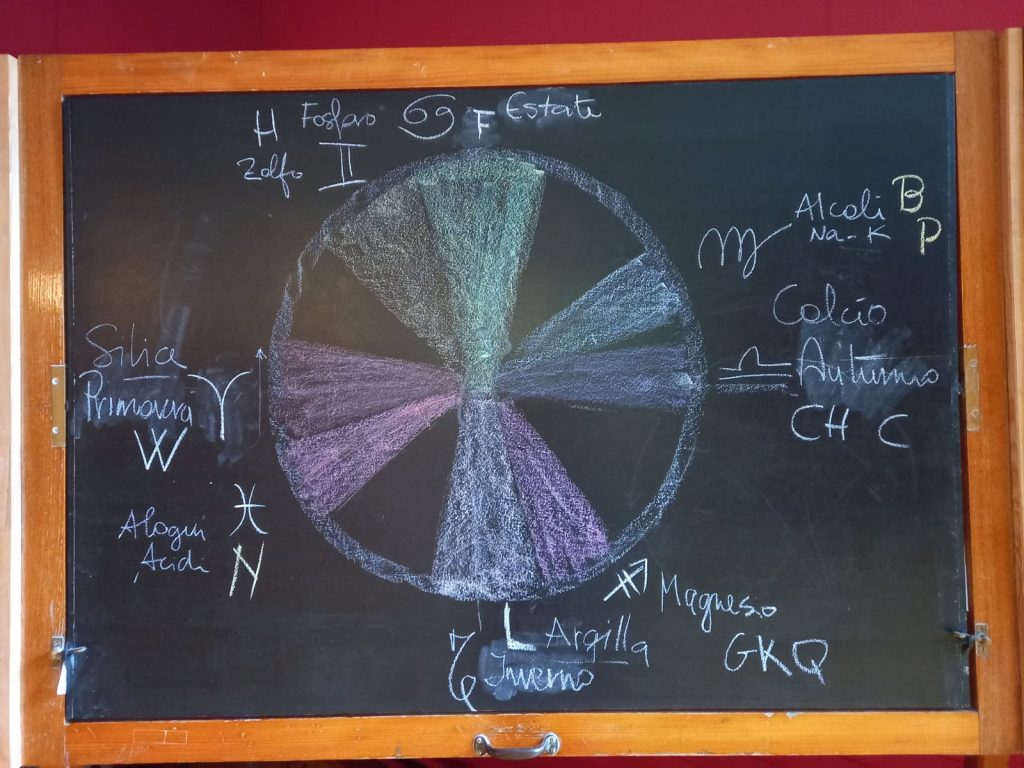 H Fosforo ♋ F Estate
Zolfo ♊
♏ Alcali B
Na-K P
Calcio
♎ Autunno
CH C
Silice
Primavera ♈
W
♓
Alogeni
Acidi N
♐ Magnesio
GKQ
L Argilla
♑ Inverno